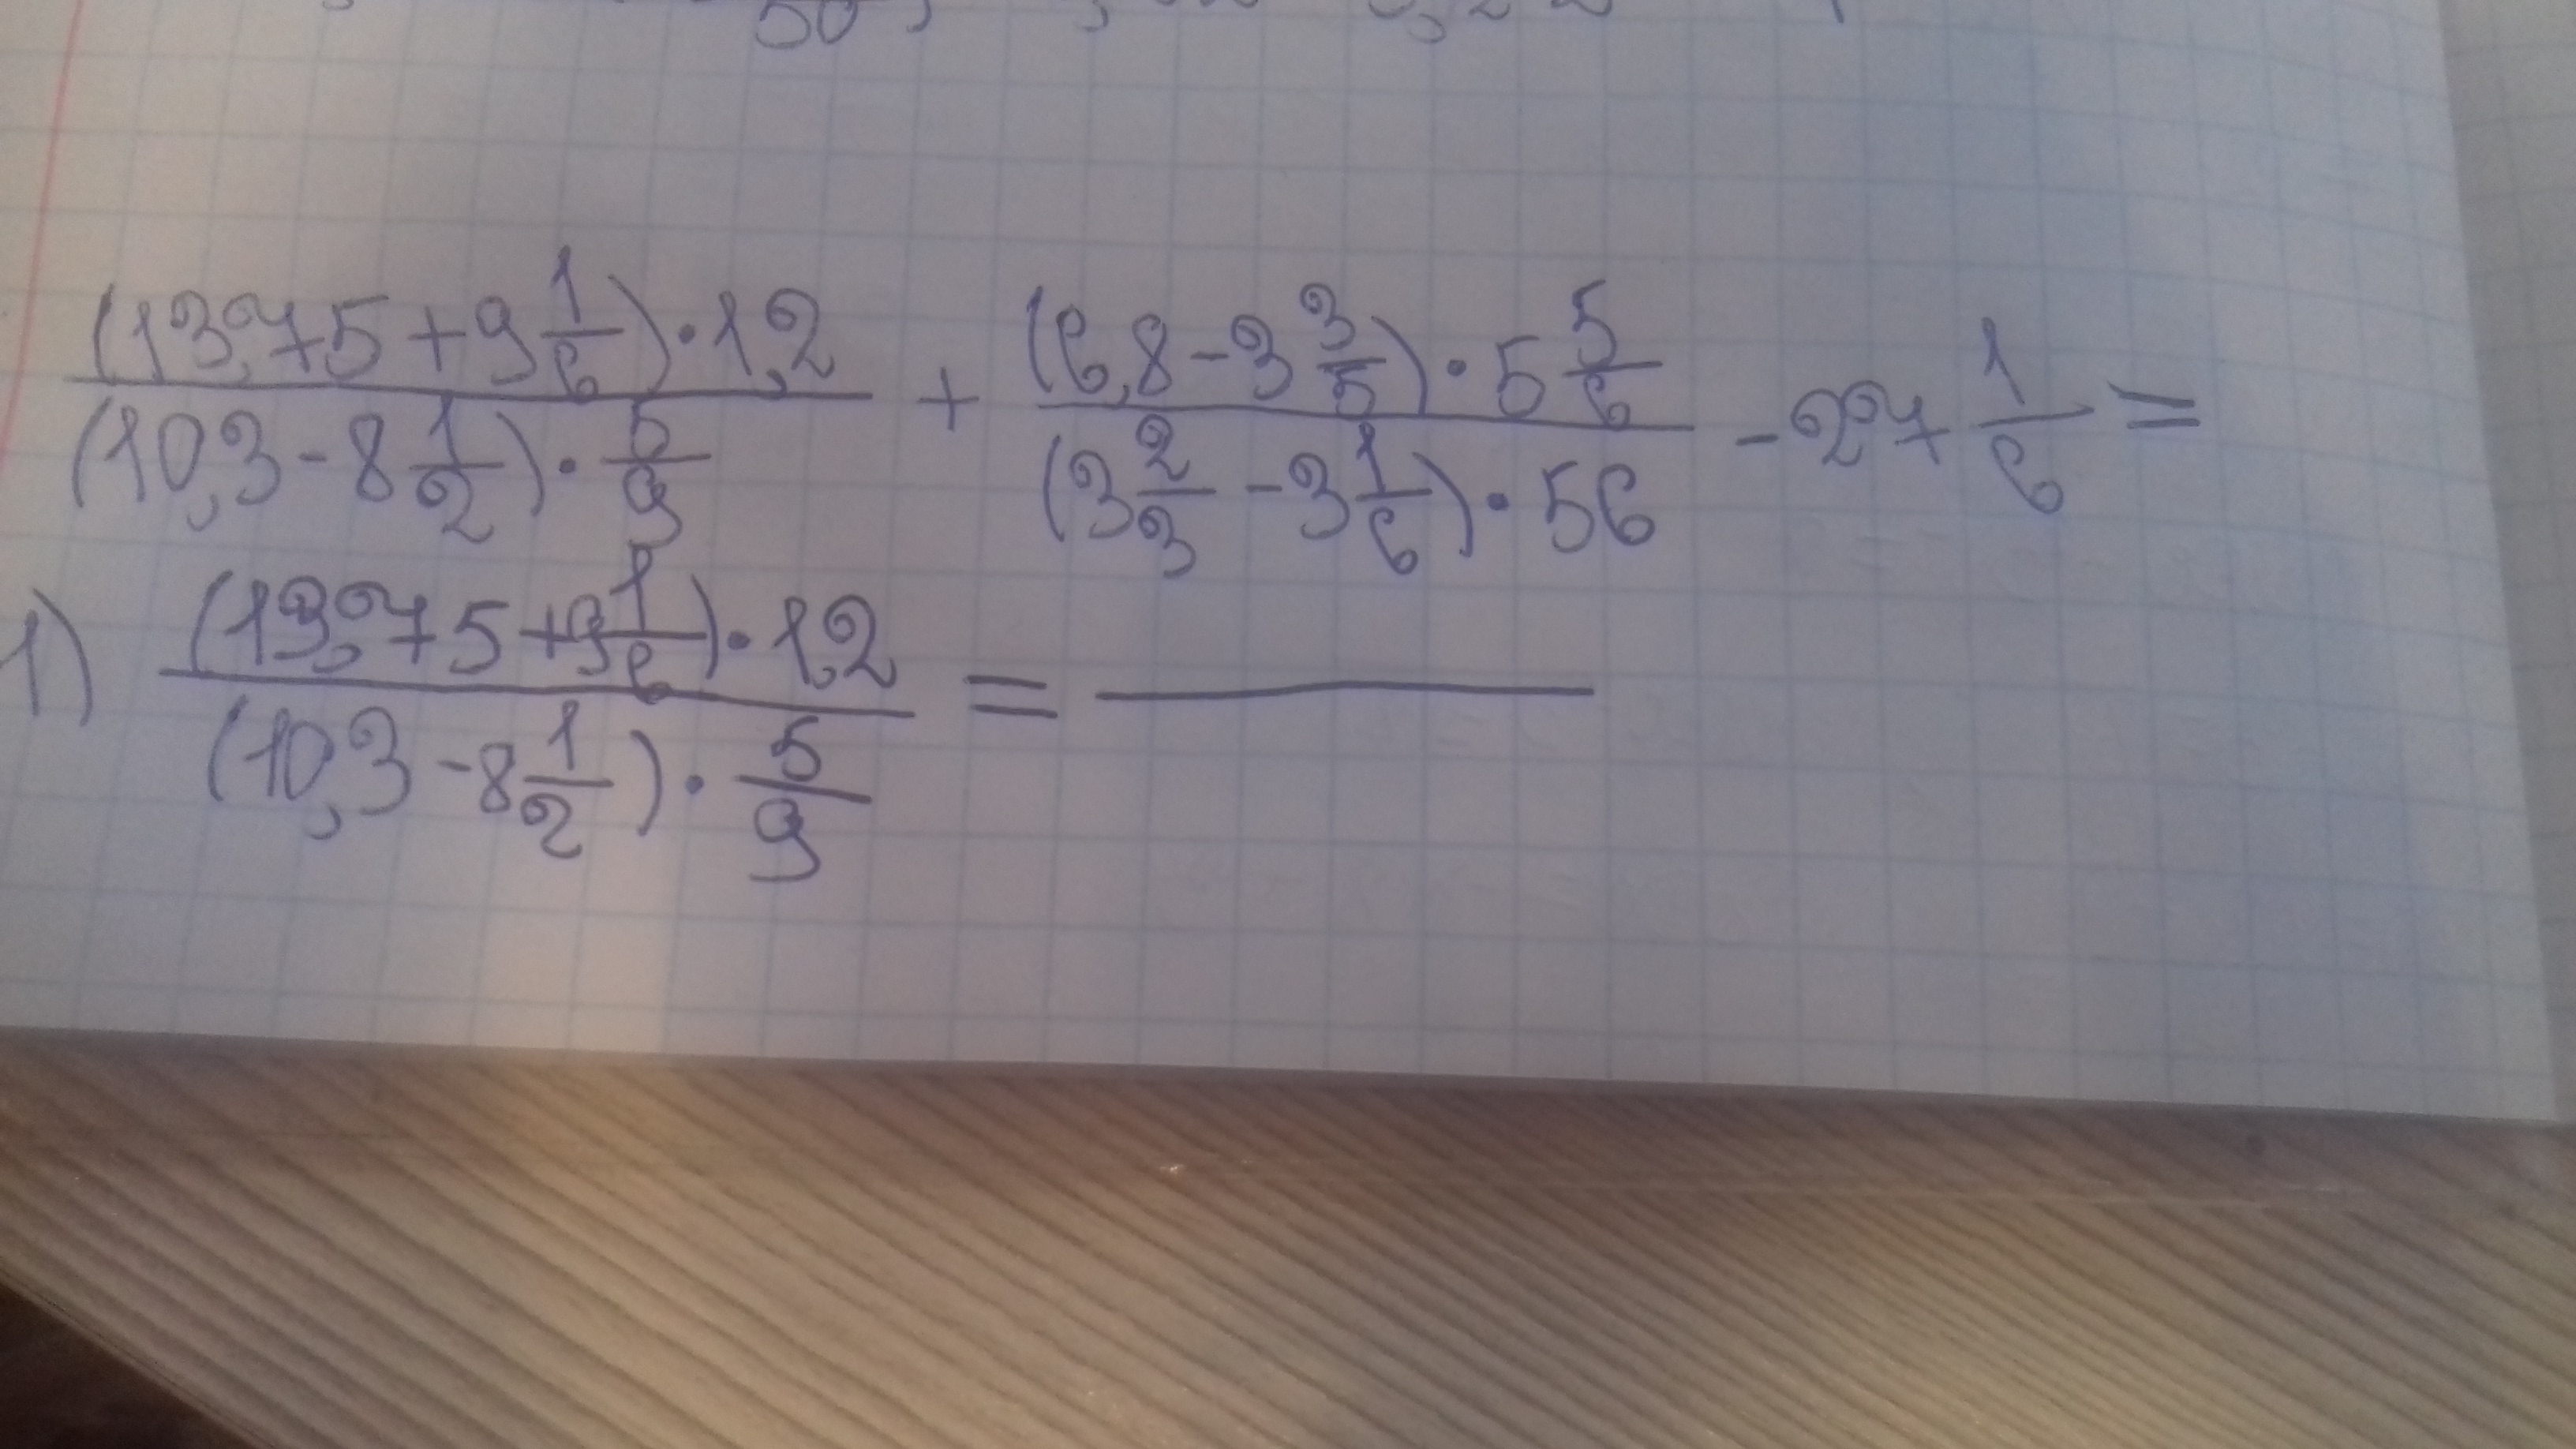 50,
(13,75+9 1/6)·1,2 / (10,3-8 1/2)·5/9 + (6,8-3 3/5)·5 5/6 / (3 2/3-3 1/6)·56 - 27 1/6 =
1) (13,75+9 1/6)·1,2 / (10,3-8 1/2)·5/9 = ―